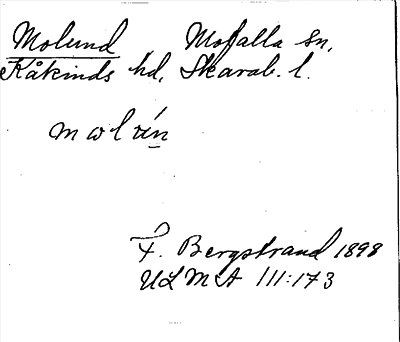 Molund Mofalla sn,
Kåkinds hd, Skarab. l.
mωlvín
F. Bergstrand 1898
ULMA 111:173